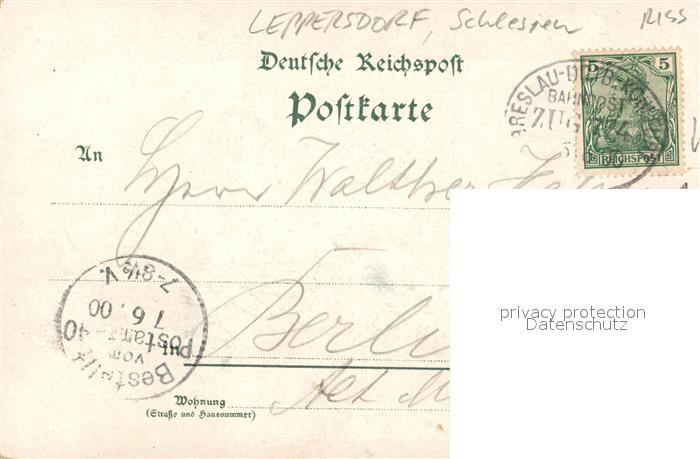 LEPPERSDORF, Schlesien RISS
Deutsche Reichspost
Postkarte
5 5
REICHSPOST
BRESLAU-
BAHNPOST
ZUG
An
Herrn Walther
privacy protection
Datenschutz
7-8½ V.
7 6. 00
Postamt 40
vom
Bestellt
Berlin
Wohnung
(Straße und Hausnummer)